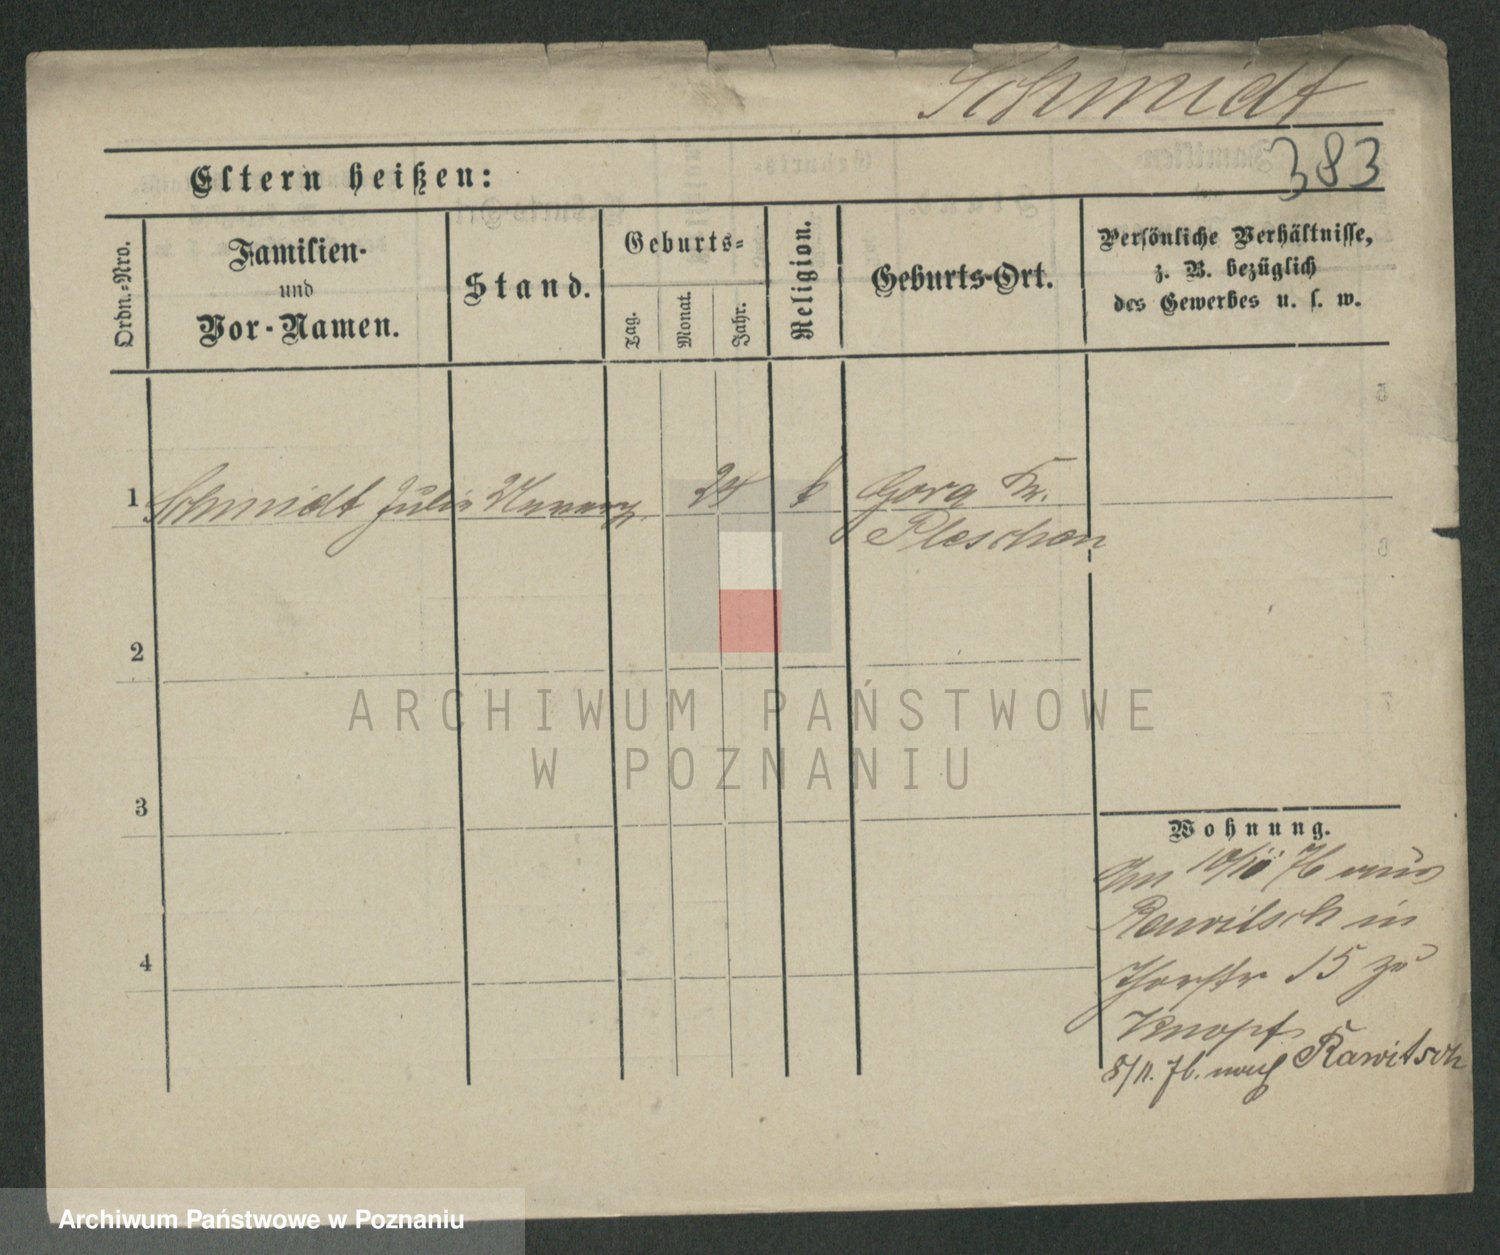 Schmidt
383
Eltern heißen:
Ordn.-Nro.
Familien-
und
Vor-Namen.
Stand.
Geburts-
Tag.
Monat.
Jahr.
Religion.
Geburts-Ort.
Persönliche Verhältnisse,
z. B. bezüglich
des Gewerbes u. s. w.
1 Schmidt Julie 24 Gora Kr.
Pleschen
2
3
4
Wohnung.
Am 10/10 76 aus
Rawitsch in
15 zu
Knopf
8/11. 76. nach Rawitsch
ARCHIWUM PAŃSTWOWE
W POZNANIU
Archiwum Państwowe w Poznaniu